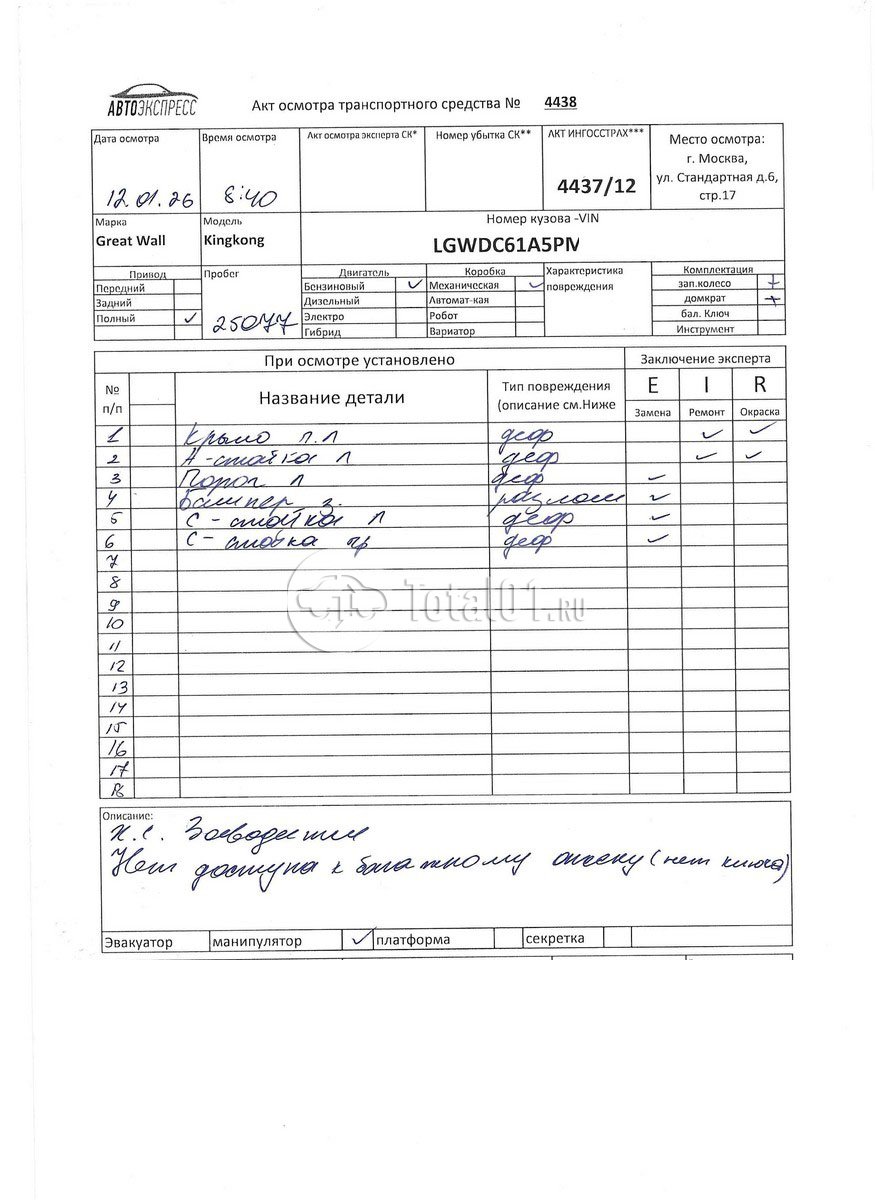 АВТОЭКСПРЕСС
Акт осмотра транспортного средства № 4438
Дата осмотра Время осмотра Акт осмотра эксперта СК* Номер убытка СК** АКТ ИНГОССТРАХ*** Место осмотра:
г. Москва,
12.01.26 8:40 4437/12 ул. Стандартная д.6,
стр.17
Марка Модель Номер кузова -VIN
Great Wall Kingkong LGWDC61A5PM
Привод Пробег Двигатель Коробка Характеристика Комплектация
Передний Бензиновый ✓ Механическая ✓ повреждения зап.колесо +
Задний Дизельный Автомат-кая домкрат +
Полный ✓ 25077 Электро Робот бал. Ключ
Гибрид Вариатор Инструмент
При осмотре установлено Заключение эксперта
№ п/п Название детали Тип повреждения (описание см.Ниже E I R
Замена Ремонт Окраска
1 Крыло п.л деф ✓ ✓
2 А-стойка л деф ✓ ✓
3 Порог л деф ✓
4 Бампер з. разлом ✓
5 С-стойка л деф ✓
6 С-стойка пр деф ✓
7
8
9
10
11
12
13
14
15
16
17
18
Total01.RU
Описание:
Заводится
Нет доступа к багажному отсеку (нет ключа)
Эвакуатор манипулятор ✓ платформа секретка